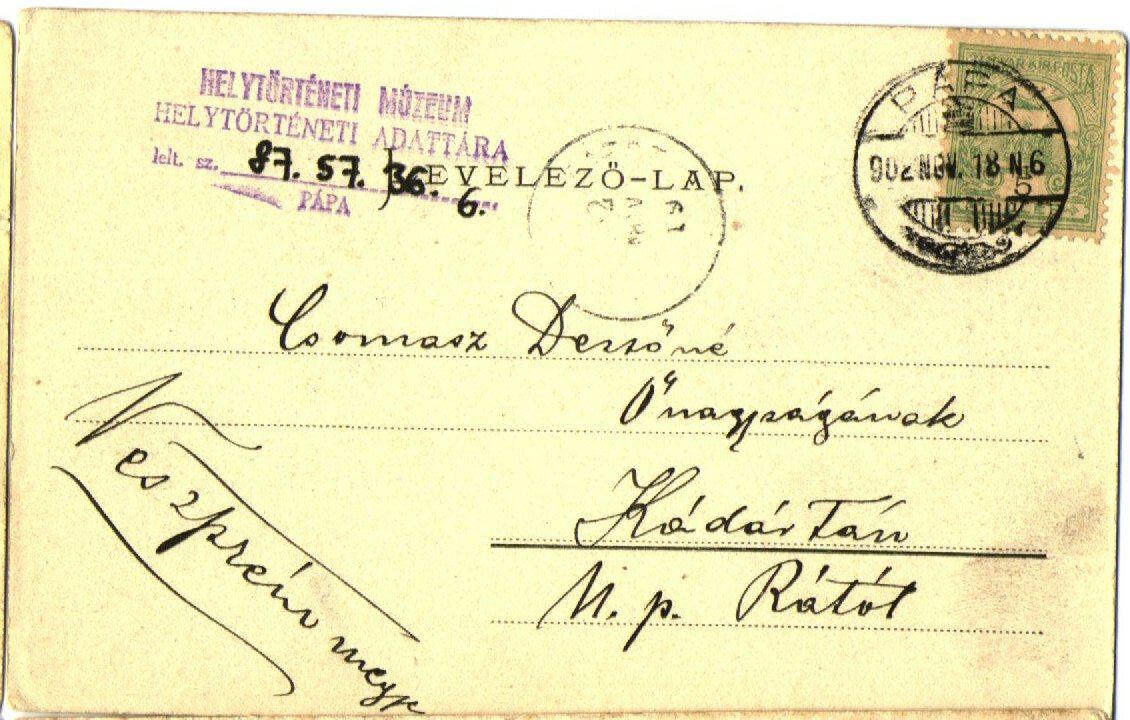 HELYTÖRTÉNETI MÚZEUM
HELYTÖRTÉNETI ADATTÁRA
lelt. sz. 87. 57. 36. 6.
PÁPA
LEVELEZŐ-LAP.
MAGYAR KIR. POSTA
PÁPA
902 NOV. 18 N. 6
5
Csomasz Dezsőné
Őnagyságának
Kádártán
U. p. Rátót
Veszprém megye